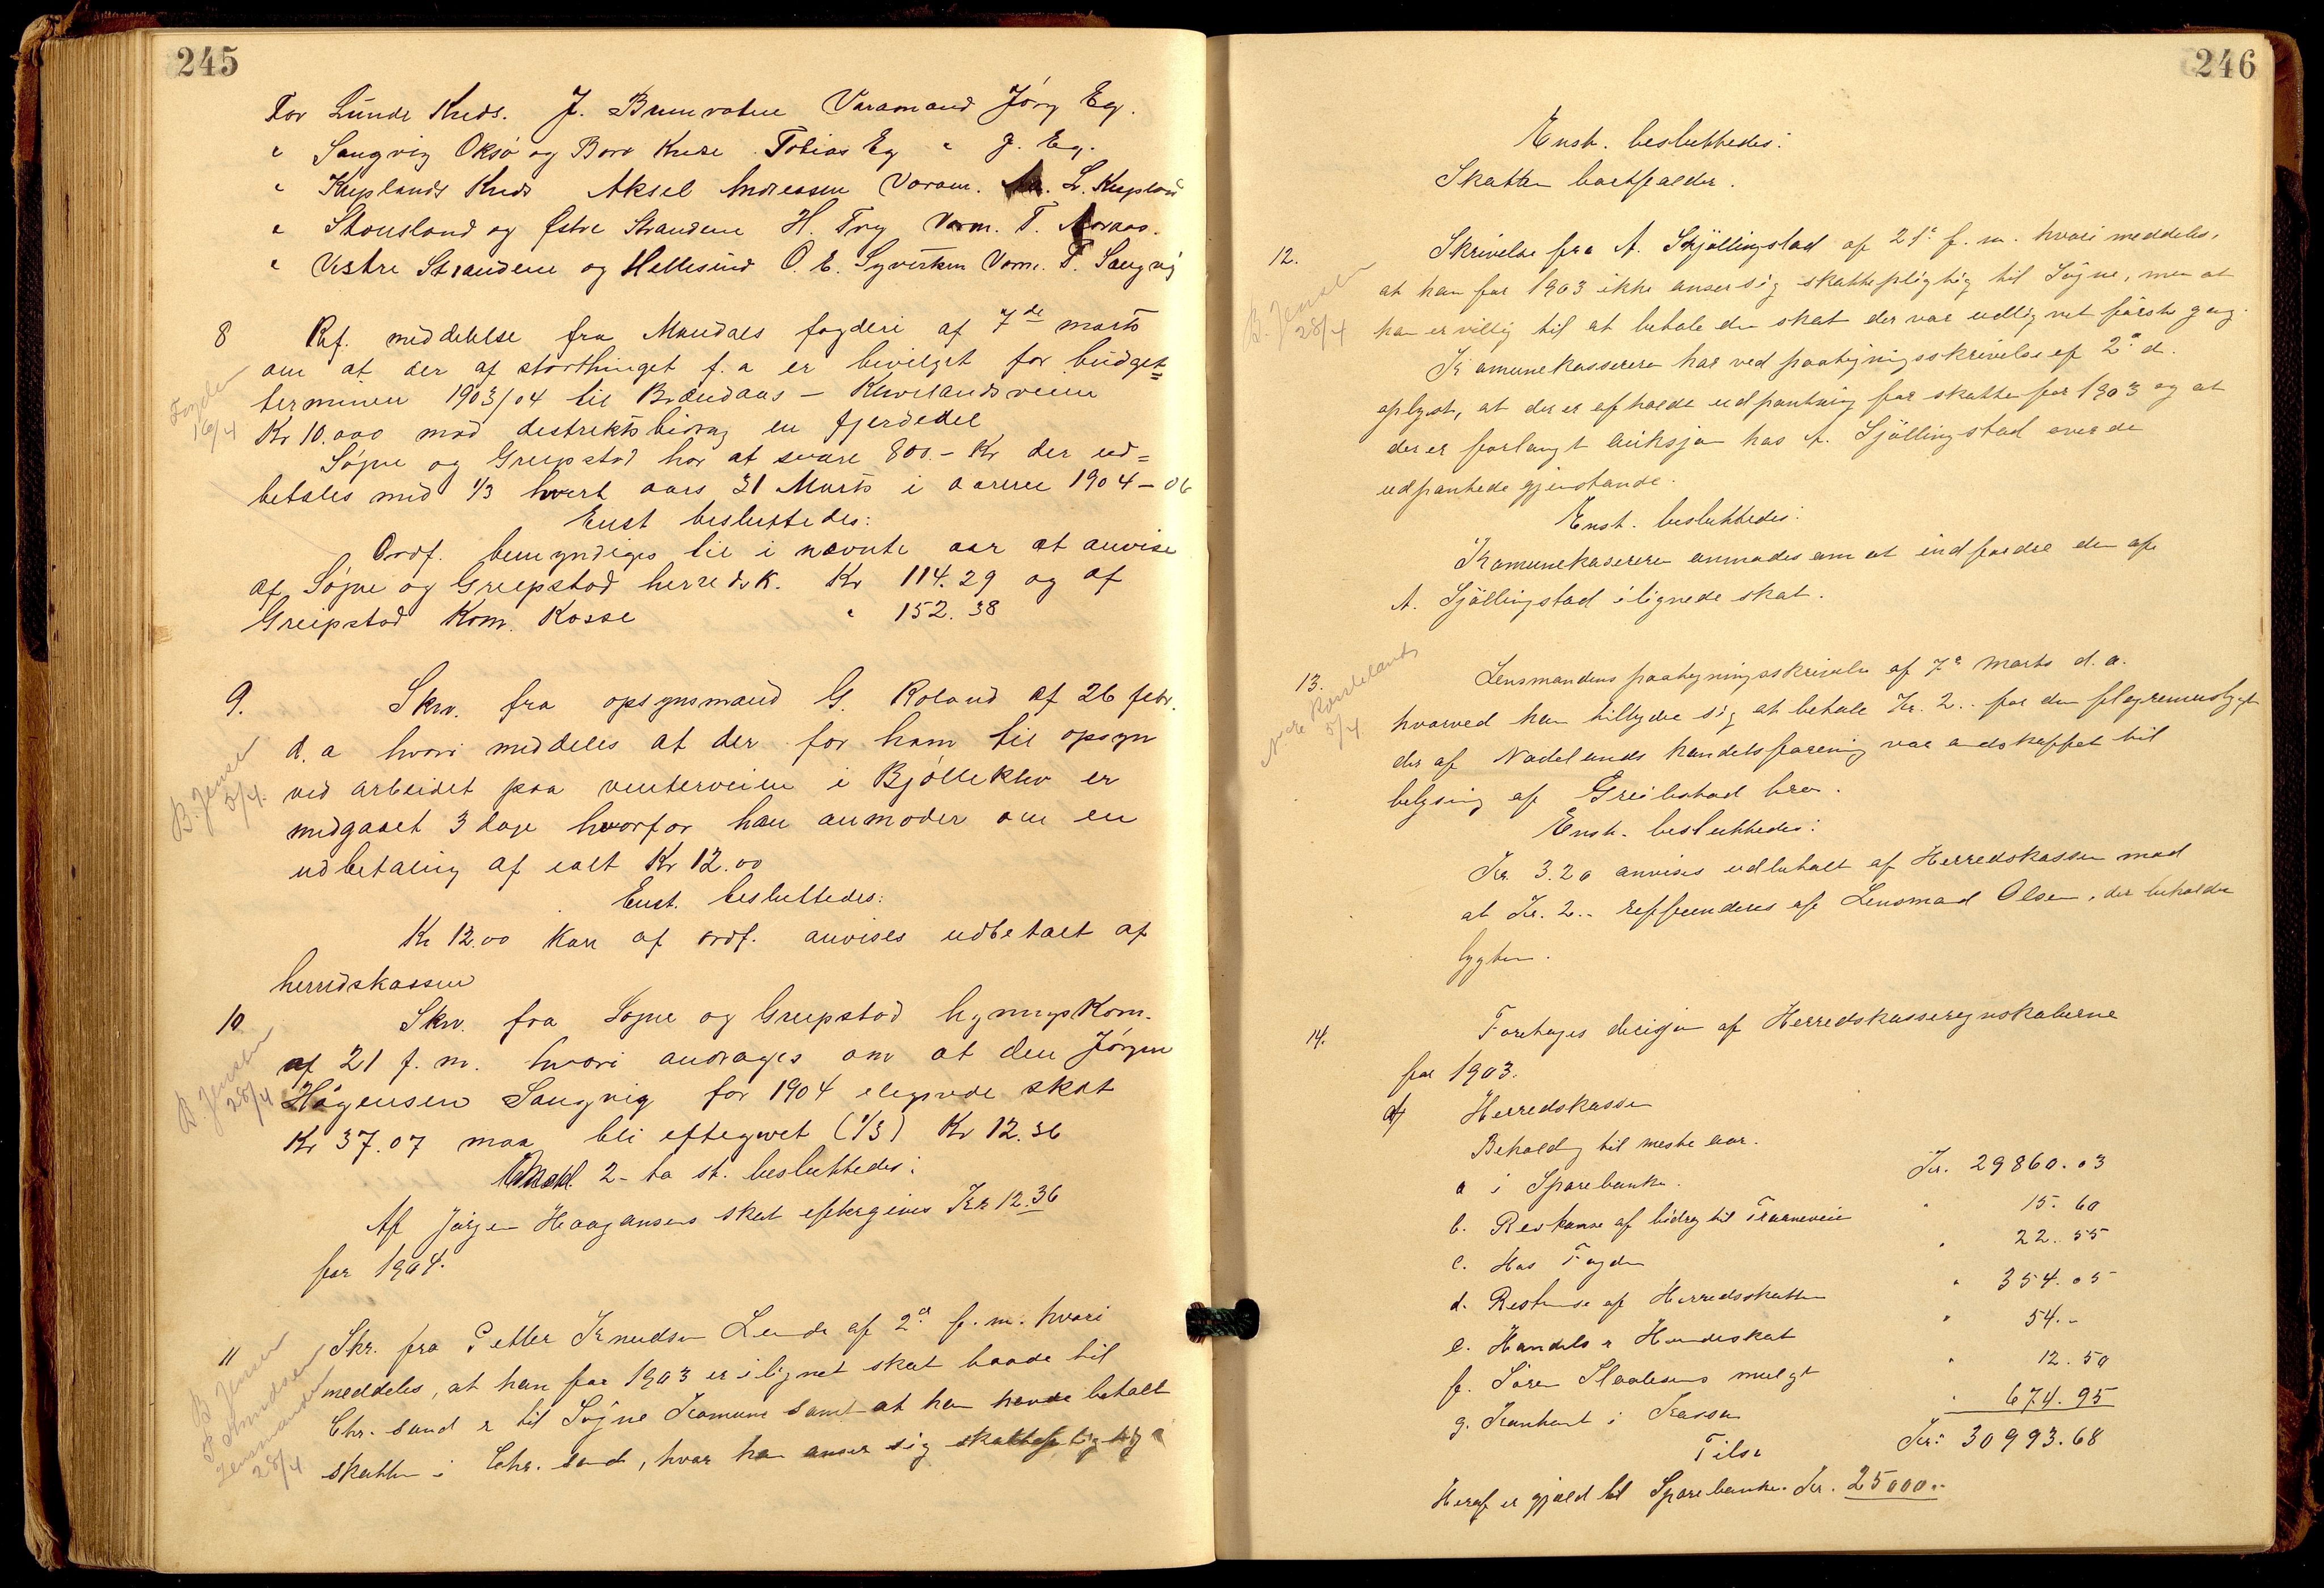 245
For Lunde Kreds. J. Brunvatne Varamand Jörg Eg.
" Sangvig Oksö og Borø Kreds Tobias Eg " J. Eg.
" Kleplands Kreds Aksel Andreassen Varam. L. Klepland
" Stousland og Østre Strandene H. Try Varm. T. Aaraas.
" Vestre Strandene og Hellesund O. E. Syvertsen Varm. T. Sangvig
8 Ref. meddelelse fra Mandals fogderi af 7de marts
om at der af storthinget f. a er bevilget for budget=
terminen 1903/04 til Brændaas - Kleveland veien
Kr 10.000 mod destriktsbidrag en fjerdedel
Fogden
16/4
Søgne og Greepstad har at svare 800.- Kr der ud=
betales med 1/3 hvert aars 31 Marts i aarene 1904-06
Enst besluttedes:
Ordf. bemyndiges til i nævnte aar at anvise
af Søgne og Greepstad herredsk. Kr 114.29 og af
Greipstad Kom. Kasse " 152.38
9. Skrv. fra opsynsmand G. Roland af 26 febr.
d. a hvori meddeles at der for ham til opsyn
ved arbeidet paa venterveien i Bjölleklev er
medgaaet 3 dage hvorfor han anmoder om en
udbetaling af ialt Kr 12.00
B. Jensen
5/4.
Enst. besluttedes:
Kr 12.00 kan af ordf. anvises udbetalt af
herredskassen
10 Skrv. fra Søgne og Greepstad ligningskom.
af 21 f. m. hvori andrages om at den Jörgen
Hågensen Sangvig for 1904 ilignede skat
Kr 37.07 maa bli eftergivet (1/3) Kr 12.36
B Jensen
28/4
2-ta st. besluttedes:
Af Jörgen Haagansens skat eftergives Kr 12.36
for 1904.
11 Skr. fra Petter Knudsen Lunde af 2den f. m. hvori
meddeles, at han for 1903 er ilignet skat baade til
Chr. sand og til Søgne Komune samt at han havde betalt
skatten i Chr. sand, hvor han anser sig skattepligtig
B Jensen
P Knudsen
Lensmanden
28/4
246
Enst. besluttedes:
Skatten bortfalder.
12. Skrivelse fra A. Skjöllingstad af 21de f. m. hvori meddeles,
at han for 1903 ikke anser sig skattepligtig til Søgne, men at
han er villig til at betale den skat der var udlignet første gang.
B. Jensen
28/4
Komunekassereren har ved paategningsskrivelse af 2den d.
oplyst, at der er afholdt udpantning for skatten for 1903 og at
der er forlangt auksjon hos A. Sjöllingstad over de
udpantede gjenstande.
Enst. besluttedes:
Komunekassereren anmodes om at indfordre den af
A. Sjöllingstad ilignede skat.
13. Lensmandens paategningsskrivelse af 7de Marts d. a.
hvorved han tilbyder sig at betale Kr. 2.. for den flagermuslygte
der af Nodelands handelsforening var andskaffet til
belysning af Greibstad bro.
5/4
Enst. besluttedes:
Kr. 3.20 anvises udbetalt af Herredskassen mod
at Kr. 2.. reffunderes af Lensmand Olsen, der beholder
lygten.
14. Foretages decisjon af Herredskasseregnskaberne
for 1903.
Herredskassen
Beholdng til neste aar.
a i Sparebanken. Kr. 29860.03
b. Restanse af bidrag til Traneveien " 15.60
c. Hos Fogden " 22.55
d. Restanse af Herredsskatten " 354.05
e. Handels & Hundeskat " 54.-
f. Sören Slaatens mulgt " 12.50
g. Kontant i Kassen " 674.95
Tils. Kr: 30993.68
Heraf er gjæld til Sparebanken Kr. 25000..